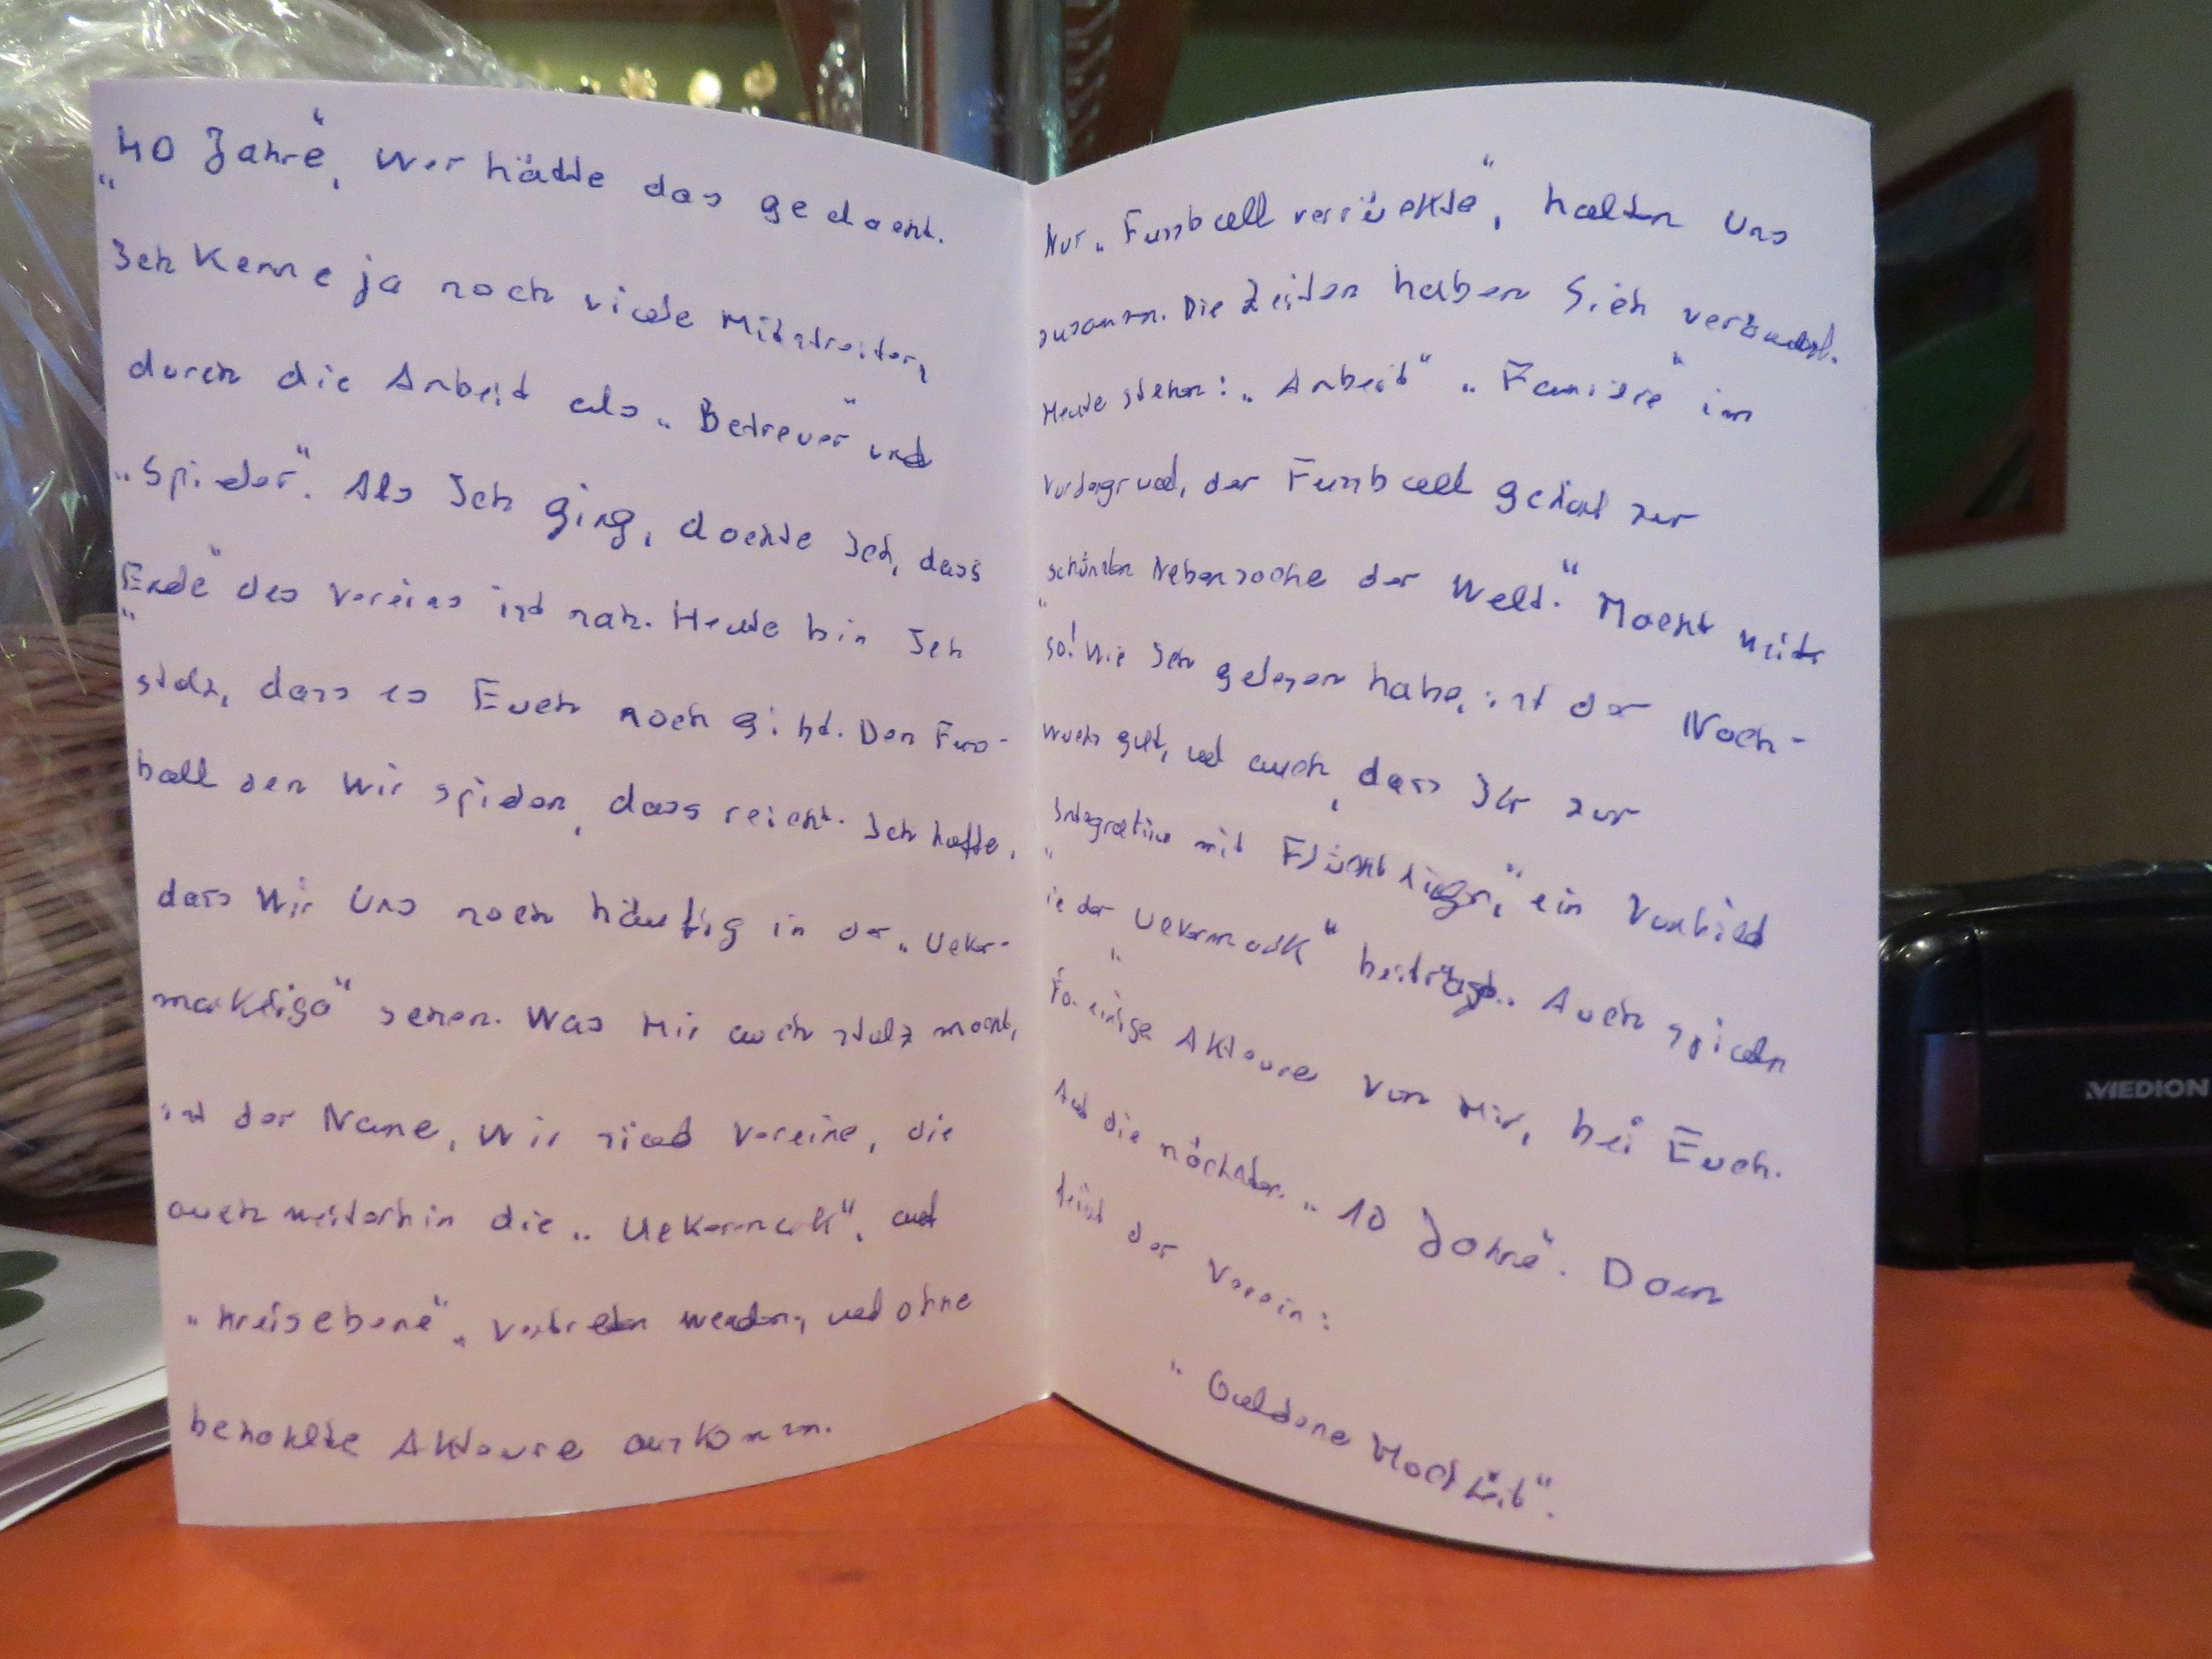 „40 Jahre“, wer hätte das gedacht.
Ich kenne ja noch viele Mitstreiter,
durch die Arbeit als „Betreuer“ und
„Spieler“. Als Ich ging, dachte Ich, dass
„Ende“ des Vereins ist nah. Heute bin Ich
stolz, dass es Euch noch gibt. Den Fuss-
ball den Wir spielen, dass reicht. Ich hoffe,
dass Wir Uns noch häufig in der „Ucker-
markliga“ sehen. Was Mir auch stolz macht,
ist der Name, Wir sind Vereine, die
auch weiterhin die „Uckermark“, auf
„Kreisebene“, vertreten werden, und ohne
bezahlte Akteure auskommen.
Nur „Fussballverrückte“, halten Uns
zusammen. Die Zeiten haben Sich verändert.
Heute stehen: „Arbeit“ „Familie“ im
Vordergrund, der Fussball gehört zur
„schönsten Nebensache der Welt.“ Macht weiter
so! Wie Ich gelesen habe, ist der Nach-
wuchs gut, und auch, dass Ihr zur
„Integration mit Flüchtlingen,“ ein Vorbild
in der „Uckermark“ beiträgt. Auch spielen
einige Akteure von Mir, bei Euch.
Auf die nächsten „10 Jahre“. Dann
feiert der Verein:
„Goldene Hochzeit“.
MEDION